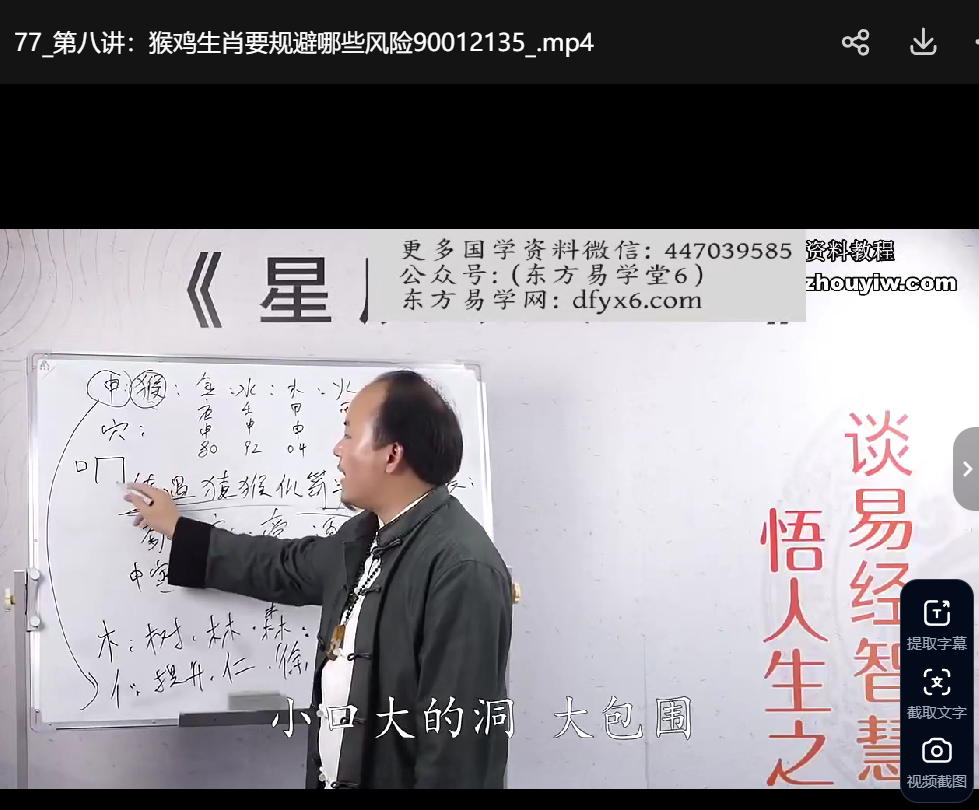 77_第八讲：猴鸡生肖要规避哪些风险90012135_.mp4
更多国学资料微信：447039585
公众号：(东方易学堂6)
东方易学网：dfyx6.com
资料教程
zhouyiw.com
《星
申 猴：金 水：木：火
申 申 申
80 92 04
穴：
遇猿猴似箭
申宫
木：树·林·森：
亻：提升·仁
谈易经智慧
悟人生之
小口大的洞 大包围
提取字幕
截取文字
视频截图